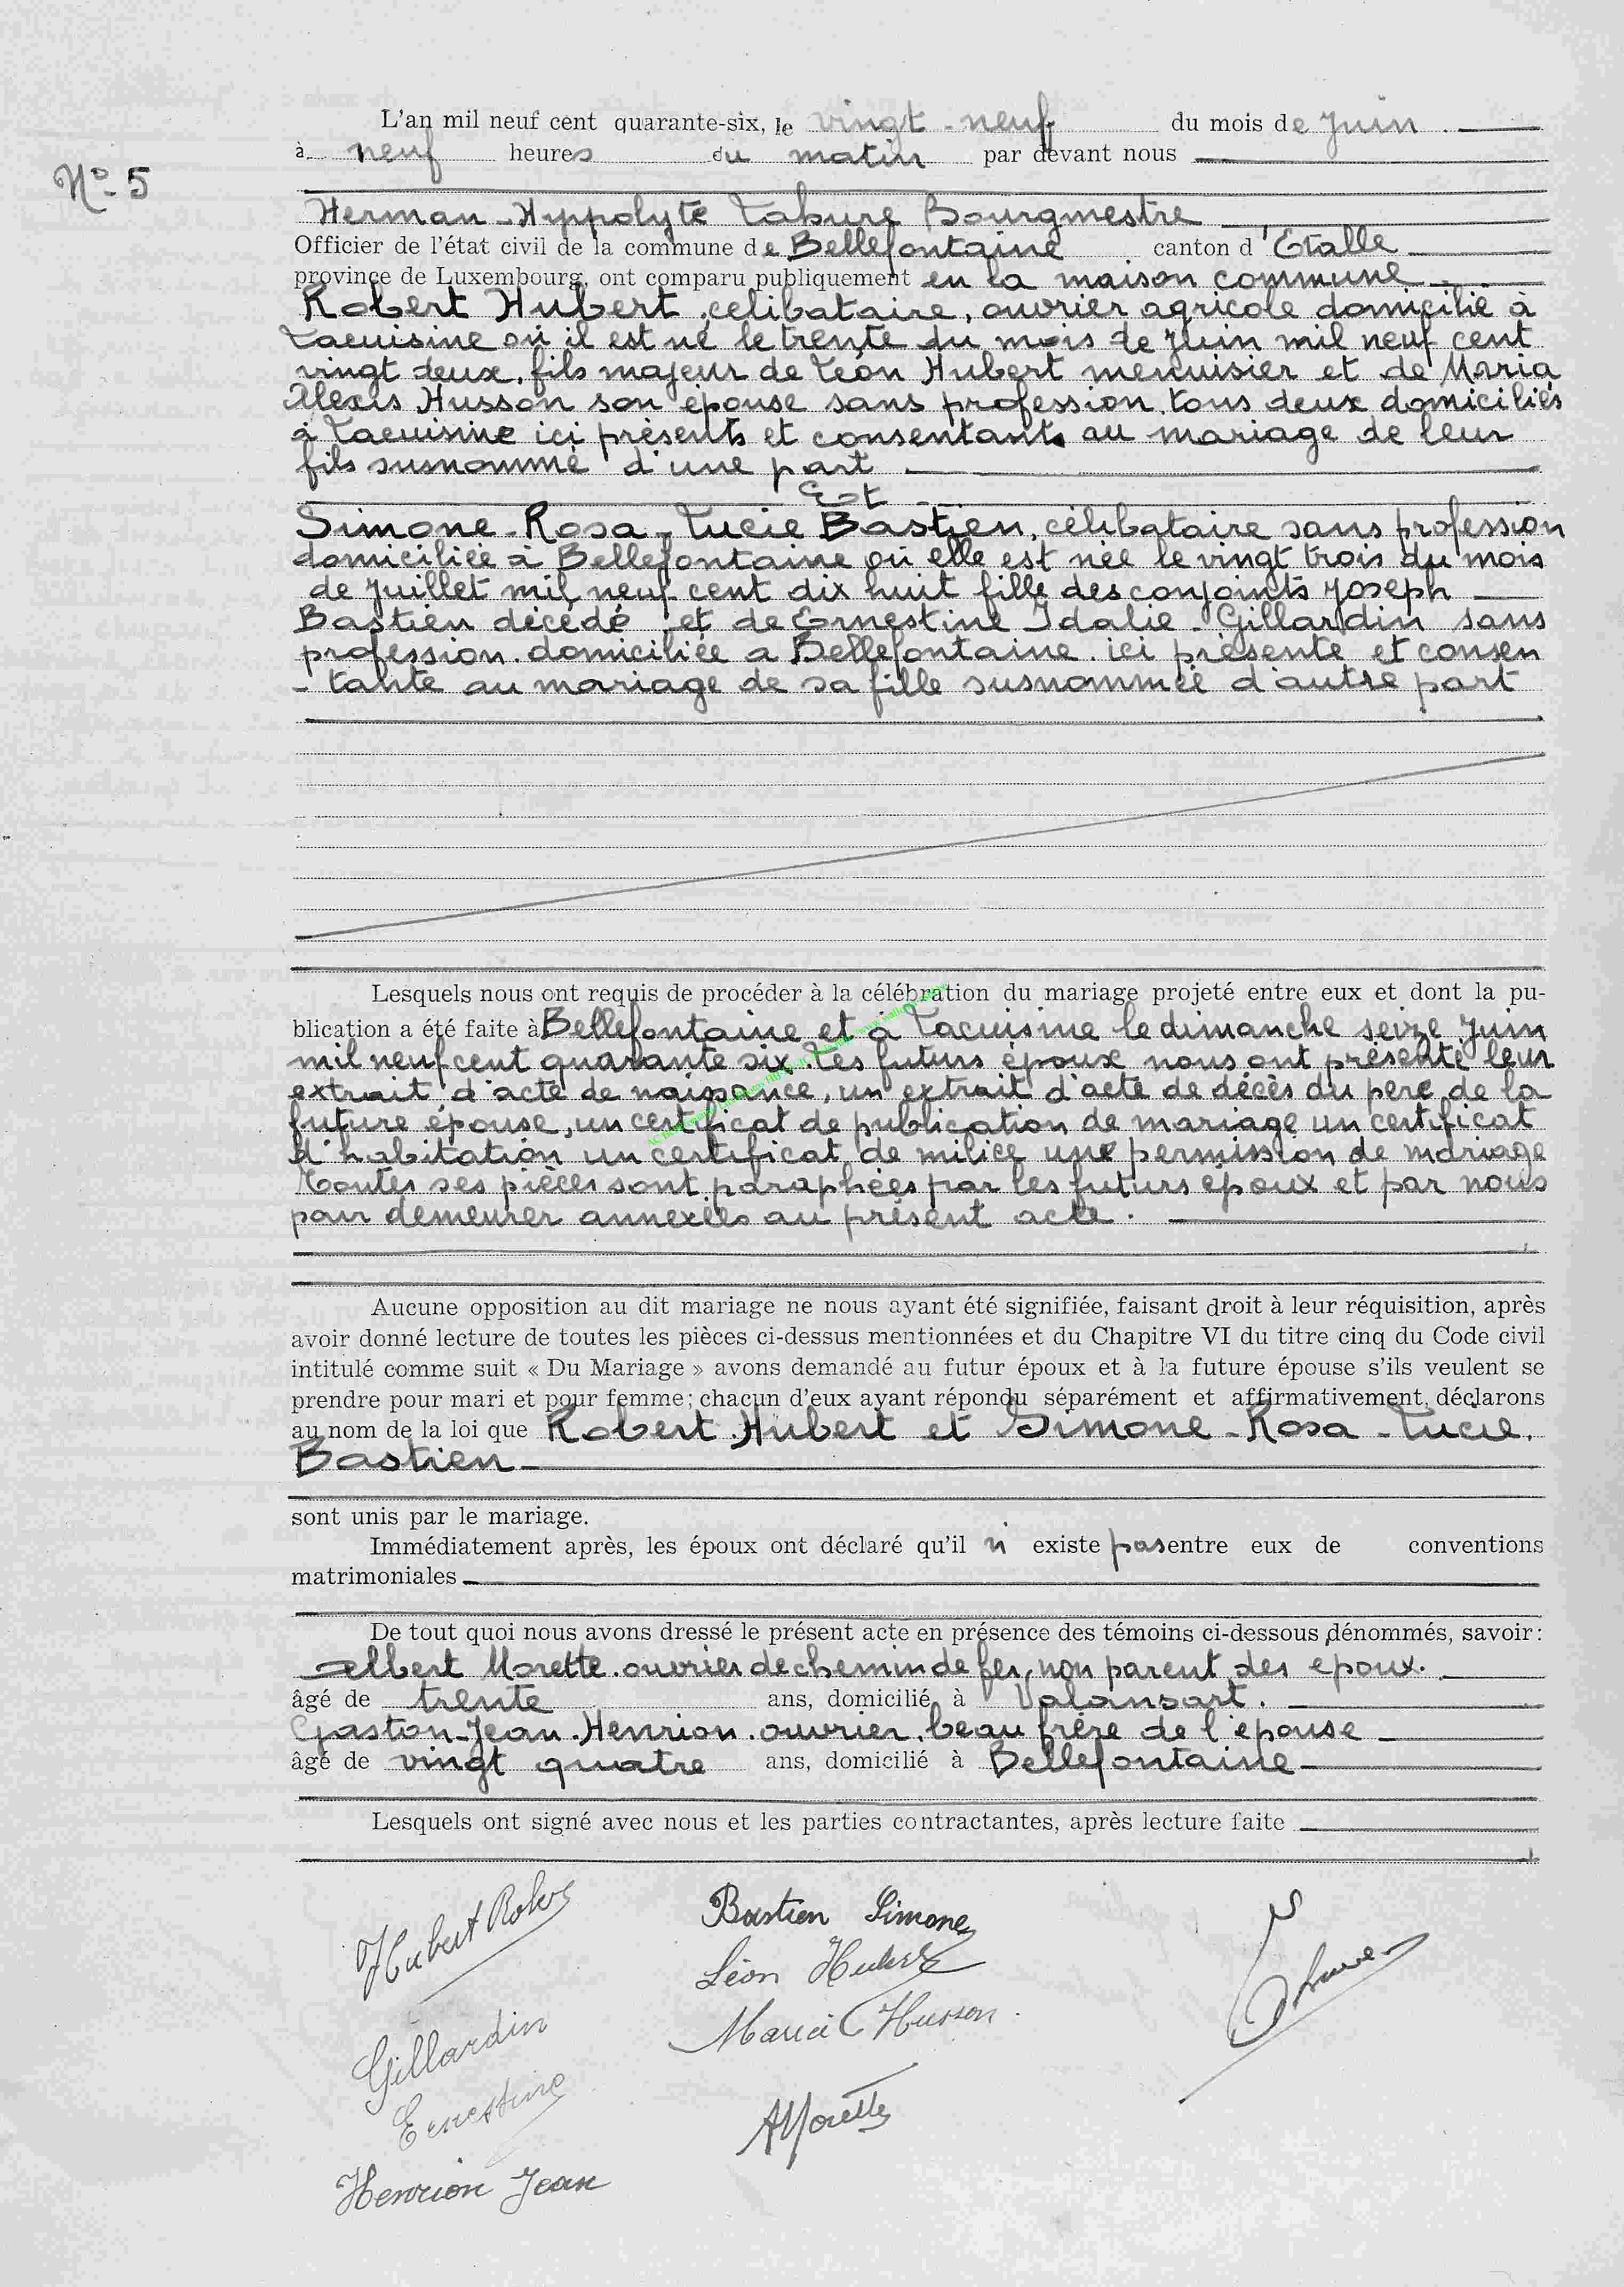 L'an mil neuf cent quarante-six, le vingt-neuf du mois de Juin.
à neuf heures du matin par devant nous
No 5
Herman-Hyppolyte Labure Bourgmestre
Officier de l'état civil de la commune de Bellefontaine canton d'Etalle
province de Luxembourg, ont comparu publiquement en la maison commune
Robert Hubert, celibataire, ouvrier agricole domicilié à
Lacuisine où il est né le trente du mois de Juin mil neuf cent
vingt deux, fils majeur de Léon Hubert menuisier et de Maria
Alexis Husson son épouse sans profession tous deux domiciliés
à Lacuisine ici présents et consentants au mariage de leur
fils susnommé d'une part
Et
Simone-Rosa-Lucie Bastien, célibataire sans profession
domiciliée à Bellefontaine où elle est née le vingt trois du mois
de Juillet mil neuf cent dix huit fille des conjoints Joseph
Bastien décédé et de Ernestine Idalie-Gillardin sans
profession domiciliée a Bellefontaine ici présente et consen
-tante au mariage de sa fille susnommée d'autre part
Lesquels nous ont requis de procéder à la célébration du mariage projeté entre eux et dont la pu-
blication a été faite à Bellefontaine et à Lacuisine le dimanche seize Juin
mil neuf cent quarante six. Les futurs époux nous ont présenté leur
extrait d'acte de naissance, un extrait d'acte de décès du père de la
future épouse, un certificat de publication de mariage un certificat
d'habitation un certificat de milice une permission de mariage
Toutes ses pièces sont paraphées par les futurs époux et par nous
pour demeurer annexées au présent acte.
Aucune opposition au dit mariage ne nous ayant été signifiée, faisant droit à leur réquisition, après
avoir donné lecture de toutes les pièces ci-dessus mentionnées et du Chapitre VI du titre cinq du Code civil
intitulé comme suit « Du Mariage » avons demandé au futur époux et à la future épouse s'ils veulent se
prendre pour mari et pour femme; chacun d'eux ayant répondu séparément et affirmativement, déclarons
au nom de la loi que Robert Hubert et Simone-Rosa-Lucie.
Bastien
sont unis par le mariage.
Immédiatement après, les époux ont déclaré qu'il n' existe pas entre eux de conventions
matrimoniales
De tout quoi nous avons dressé le présent acte en présence des témoins ci-dessous dénommés, savoir:
Albert Morette ouvrier de chemin de fer, non parent des epoux.
âgé de trente ans, domicilié à Valansart.
Gaston-Jean-Henrion. ouvrier, beau frère de l'epouse
âgé de vingt quatre ans, domicilié à Bellefontaine
Lesquels ont signé avec nous et les parties contractantes, après lecture faite
Hubert Robert
Bastien Simone
Léon Hubert
Maria Husson
Gillardin
Ernestine
AMorette
Henrion Jean